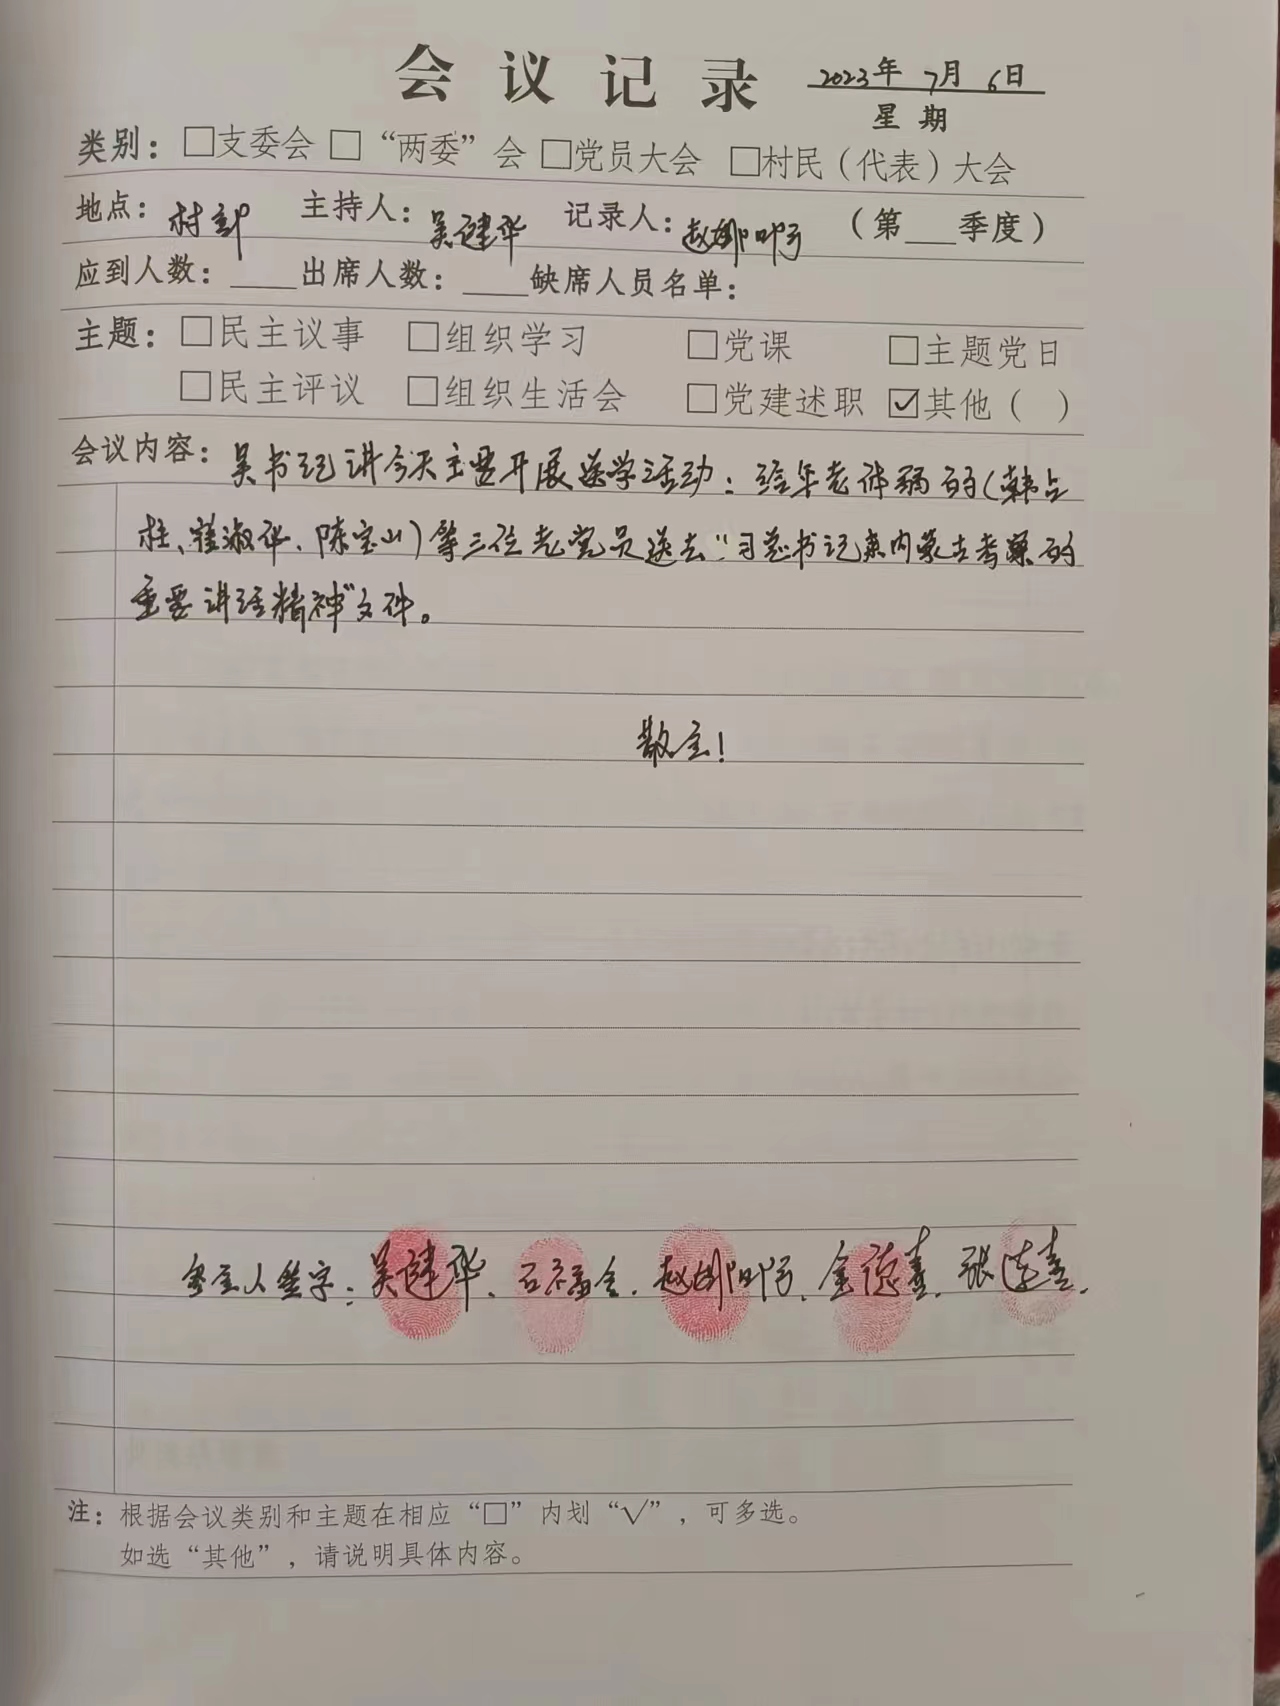 会议记录 2023年 7月 6日
星期
类别：□支委会 □“两委”会 □党员大会 □村民（代表）大会
地点：村部 主持人：吴建华 记录人：赵娜 （第___季度）
应到人数：____出席人数：____缺席人员名单：
主题：□民主议事 □组织学习 □党课 □主题党日
□民主评议 □组织生活会 □党建述职 ☑其他（ ）
会议内容：吴书记讲今天主要开展送学活动：给年老体弱的（韩占
柱、崔淑华、陈宝山）等三位老党员送去“习总书记来内蒙古考察的
重要讲话精神”文件。
散会！
参会人签字：吴建华、石福会、赵娜、金德喜、张连喜、
注：根据会议类别和主题在相应“□”内划“√”，可多选。
如选“其他”，请说明具体内容。